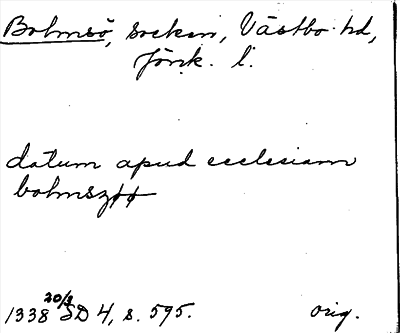 Bolmsö, socken, Västbo hd,
Jönk. l.
datum apud ecclesiam
bolmszøø
1338 20/8 SD 4, s. 595. orig.